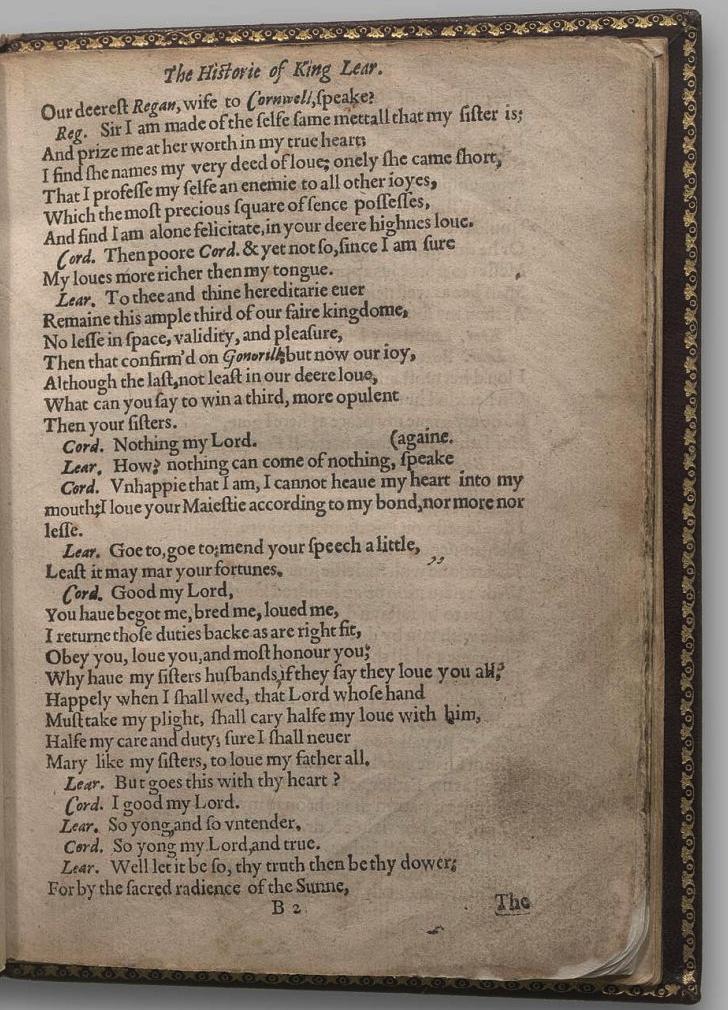 The Historie of King Lear.
Our deerest Regan, wife to Cornwell, speake?
Reg. Sir I am made of the selfe same mettall that my sister is;
And prize me at her worth in my true heart;
I find she names my very deed of loue; onely she came short,
That I professe my selfe an enemie to all other ioyes,
Which the most precious square of sence possesses,
And find I am alone felicitate, in your deere highnes loue.
Cord. Then poore Cord. & yet not so, since I am sure
My loues more richer then my tongue.
Lear. To thee and thine hereditarie euer
Remaine this ample third of our faire kingdome,
No lesse in space, validity, and pleasure,
Then that confirm'd on Gonorill; but now our ioy,
Although the last, not least in our deere loue,
What can you say to win a third, more opulent
Then your sisters.
Cord. Nothing my Lord. (againe.
Lear. How? nothing can come of nothing, speake
Cord. Vnhappie that I am, I cannot heaue my heart into my
mouth; I loue your Maiestie according to my bond, nor more nor
lesse.
Lear. Goe to, goe to; mend your speech a little,
Least it may mar your fortunes.
Cord. Good my Lord,
You haue begot me, bred me, loued me,
I returne those duties backe as are right fit,
Obey you, loue you, and most honour you;
Why haue my sisters husbands, if they say they loue you all?
Happely when I shall wed, that Lord whose hand
Must take my plight, shall cary halfe my loue with him,
Halfe my care and duty; sure I shall neuer
Mary like my sisters, to loue my father all.
Lear. But goes this with thy heart ?
Cord. I good my Lord.
Lear. So yong, and so vntender,
Cord. So yong my Lord, and true.
Lear. Well let it be so, thy truth then be thy dower;
For by the sacred radience of the Sunne,
B 2 The